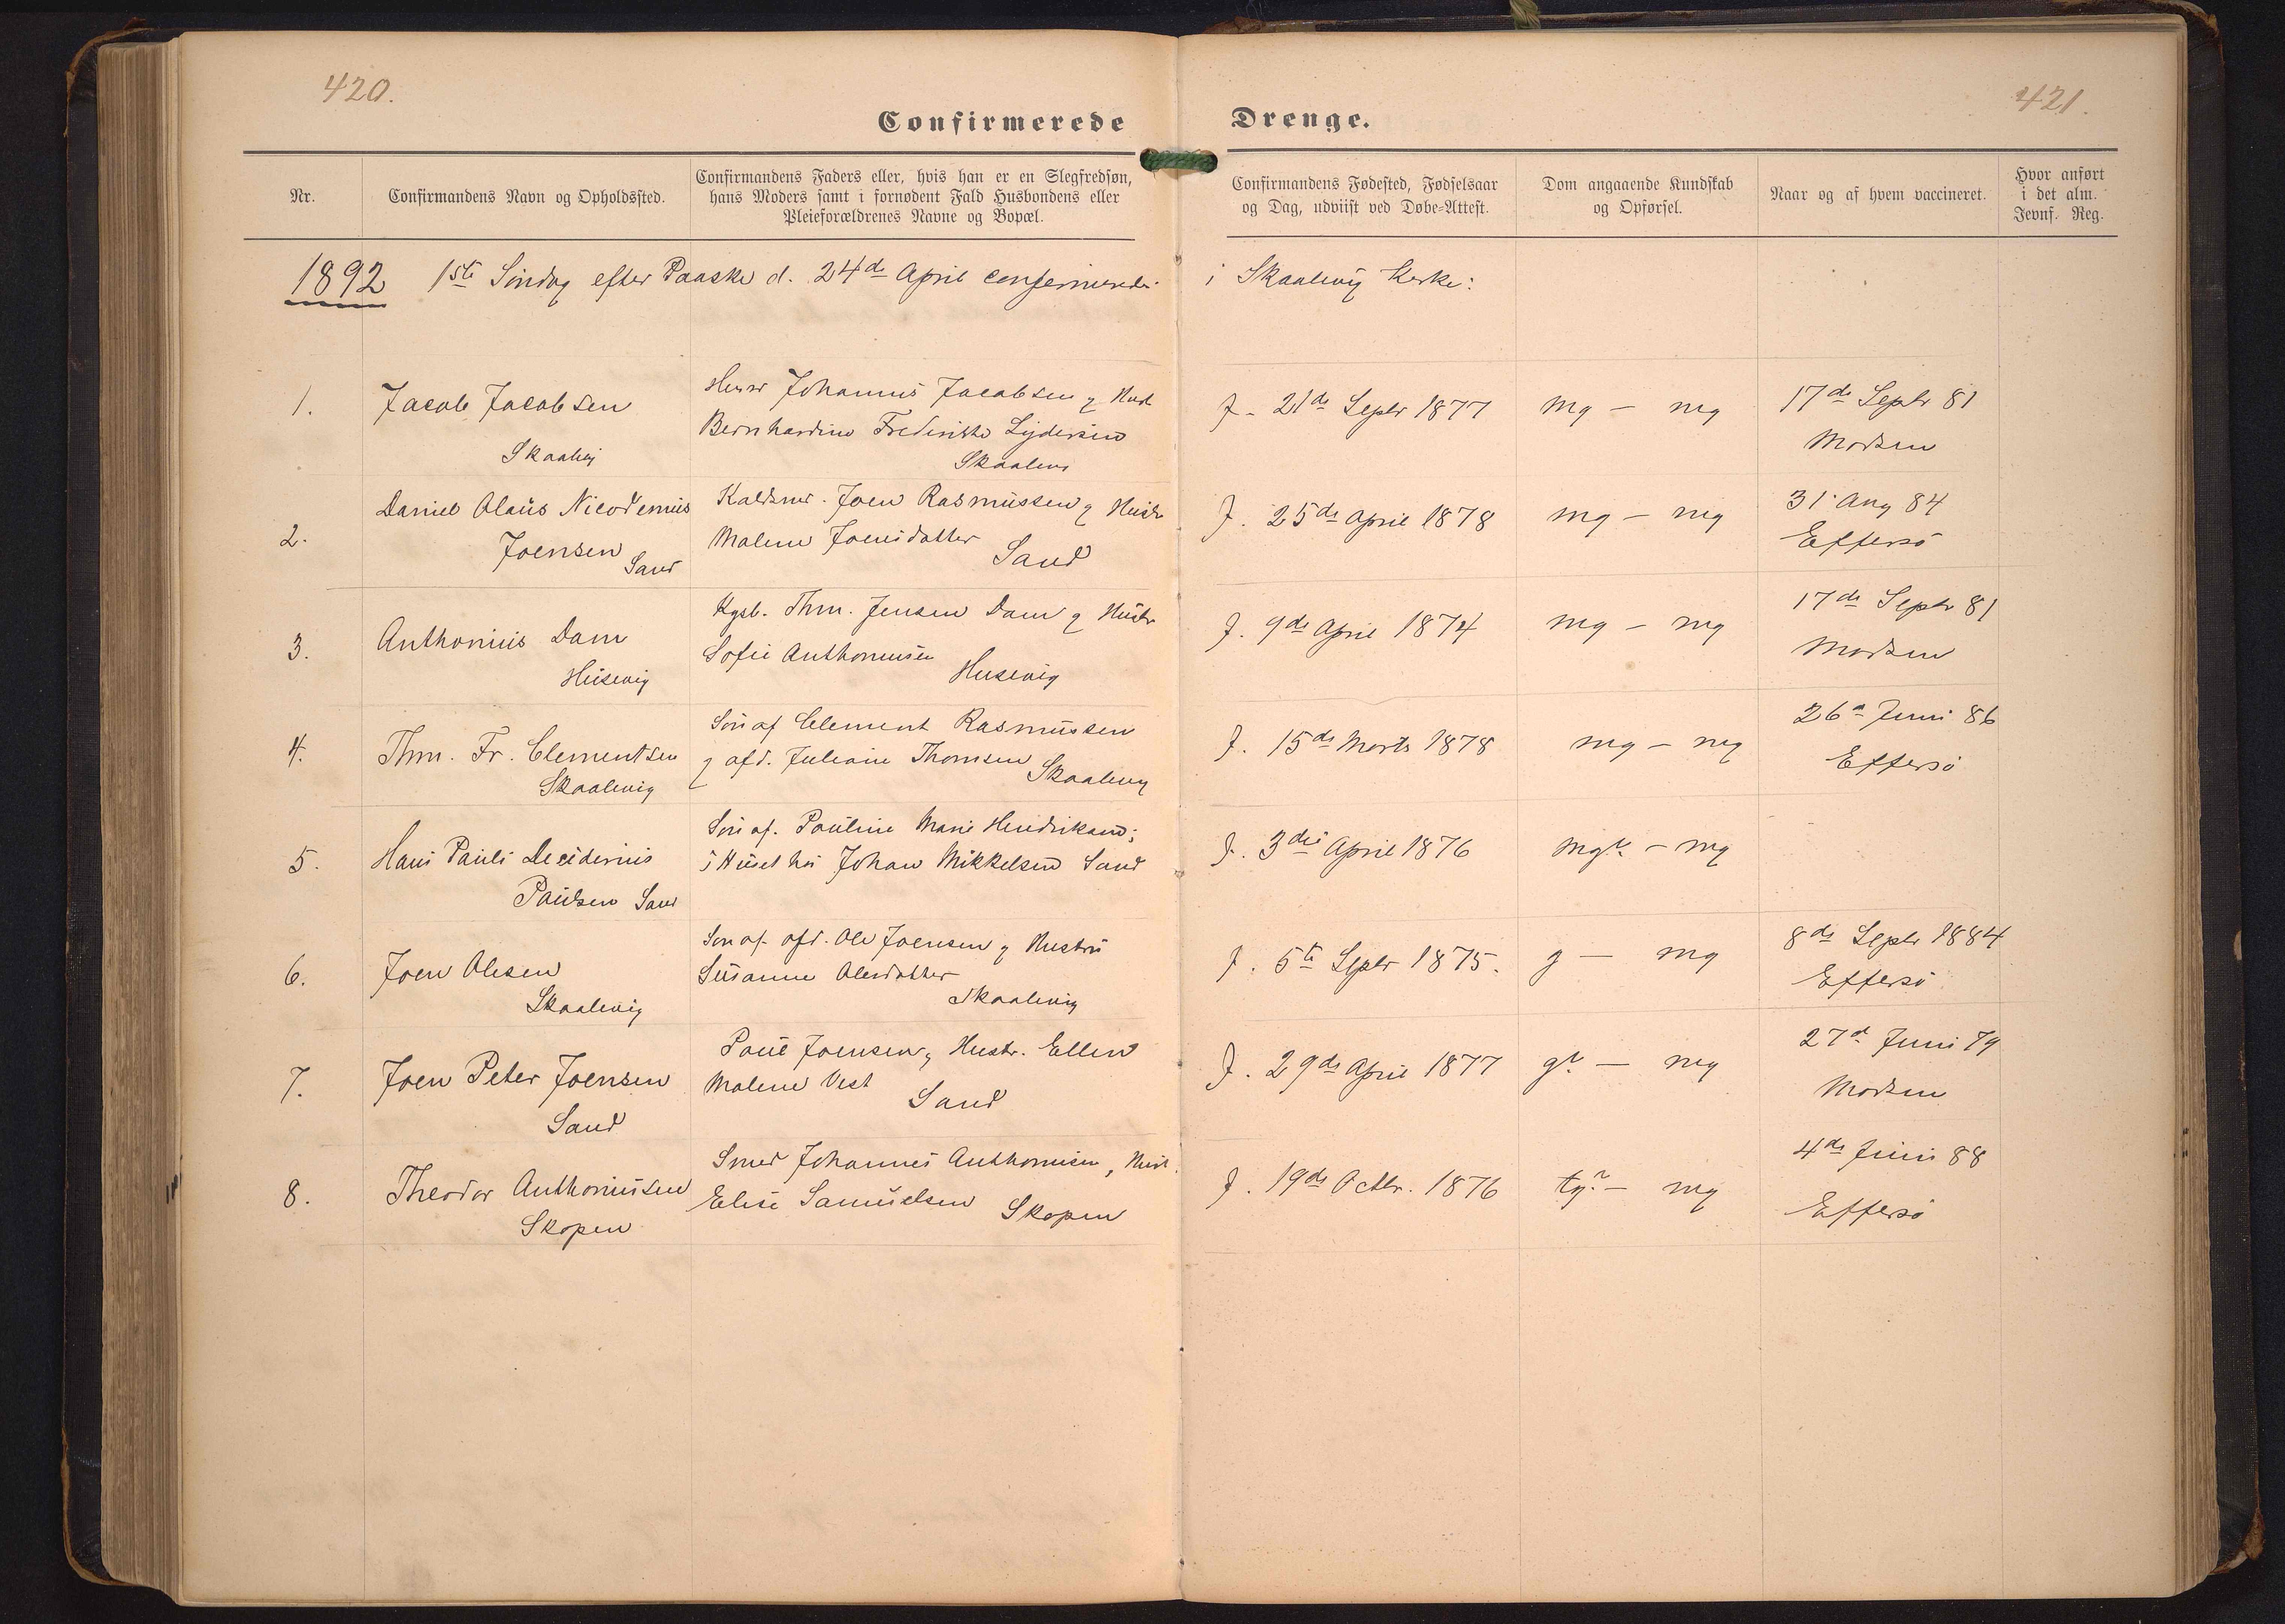 420.
421.
Confirmerede Drenge.
Nr.
Confirmandens Navn og Opholdssted.
Confirmandens Faders eller, hvis han er en Slegfredsøn,
hans Moders samt i fornødent Fald Husbondens eller
Pleieforældrenes Navne og Bopæl.
Confirmandens Fødested, Fødselsaar
og Dag, udviist ved Døbe-Attest.
Dom angaaende Kundskab
og Opførsel.
Naar og af hvem vaccineret.
Hvor anført
i det alm.
Jevnf. Reg.
1892 1ste Søndag efter Paaske d. 24de April confirmerede i Skaalevig Kirke:
1.
Jacob Jacobsen
Skaalvig
Johannes Jacobsen & Hust
Bernhardine Frederikke Lydersen
Skaalevig
f. 21de Septr 1877
mg – mg
17de Septr 81
Madsen
2.
Daniel Olaus Nicodemus
Joensen
Sand
Joen Rasmussen & Hustr
Malene Joensdatter
Sand
f. 25de April 1878
mg – mg
31 Aug 84
Effersø
3.
Anthonius Dam
Husevig
Kgsb. Thm. Jensen Dam & Hustr
Sofie Anthoniusen
Husevig
f. 9de April 1874
mg – mg
17de Septr 81
Madsen
4.
Thm. Fr. Clementsen
Skaalevig
Søn af Clement Rasmussen
& afd. Juliane Thomsen
Skaalevig
f. 15de Marts 1878
mg – mg
26d Juni 86
Effersø
5.
Hans Pauli Deciderius
Paulsen Sand
Søn af. Pauline Marie
i Huset hos Johan Mikkelsen Sand
f. 3die April 1876
mg? – mg
6.
Joen Olesen
Skaalevig
Søn af afd. Ole Joensen & Hustru
Susanne Olesdatter
Skaalevig
f. 5te Septr 1875.
g – mg
8de Septr 1884
Effersø
7.
Joen Peter Joensen
Sand
Poul Joensen & Hustr. Ellen
Malene Vest
Sand
f. 29de April 1877
g? – mg
27d Juni 79
Madsen
8.
Theodor Anthoniusen
Skopen
Smed Johannes Anthoniusen, Hust.
Elise Samuelsen
Skopen
f. 19de Octbr. 1876
tg? – mg
4de Juni 88
Effersø